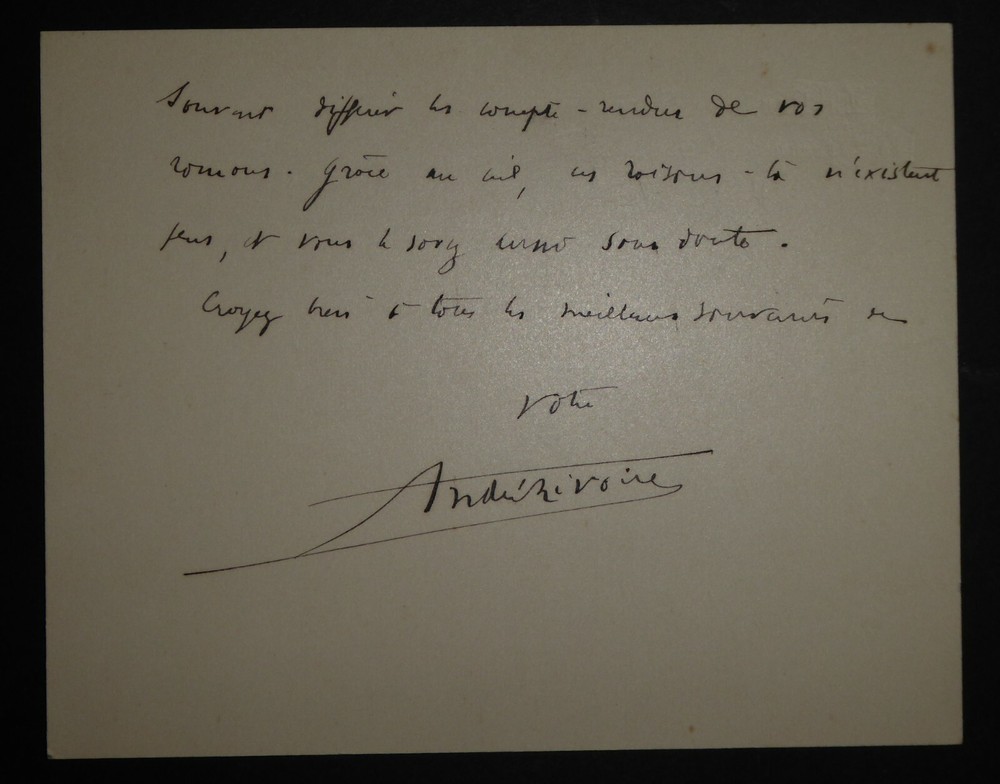 souvent différer les compte-rendus de vos
romans. Grâce au ciel, ces raisons-là n'existent
plus, et vous le savez aussi sans doute.
Croyez bien à tous les meilleurs souvenirs de
votre
André Rivoire